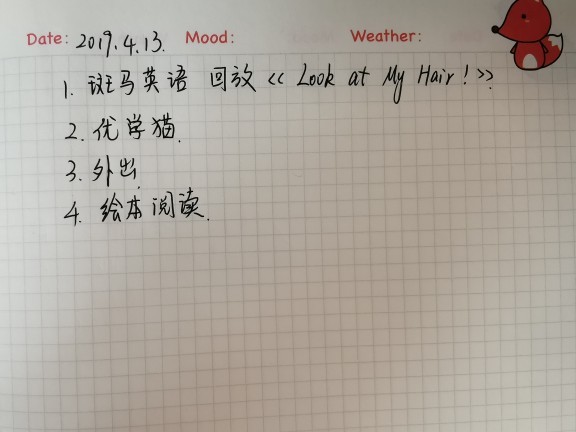 Date: 2019.4.13. Mood: Weather:
1. 斑马英语 回放 << Look at My Hair! >>
2. 优学猫.
3. 外出.
4. 绘本阅读.